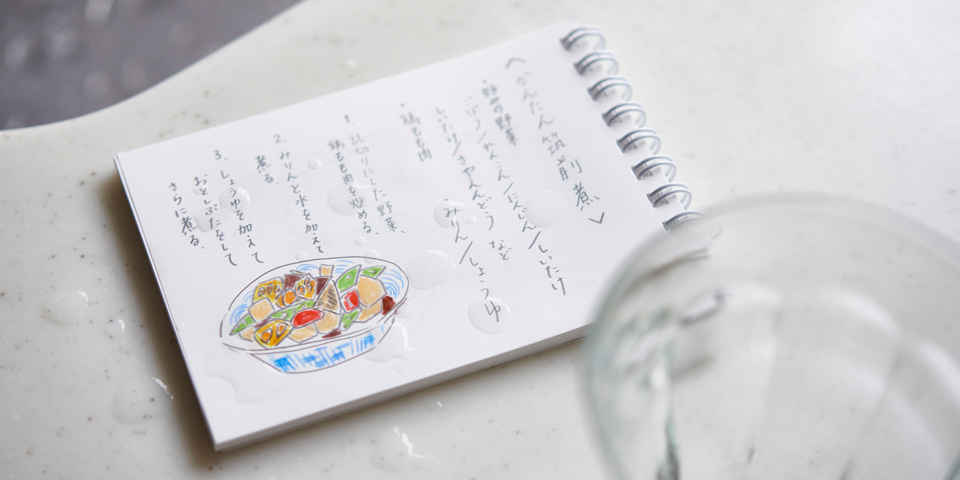 〈かんたん筑前煮〉
・好みの野菜
ごぼう/れんこん/にんじん/しいたけ
しいたけ/さやえんどう など
・鶏もも肉 ・みりん/しょうゆ
1. 乱切りにした野菜、
鶏もも肉を炒める。
2. みりんと水を加えて
煮る。
3. しょうゆを加えて
おとしぶたをして
さらに煮る。